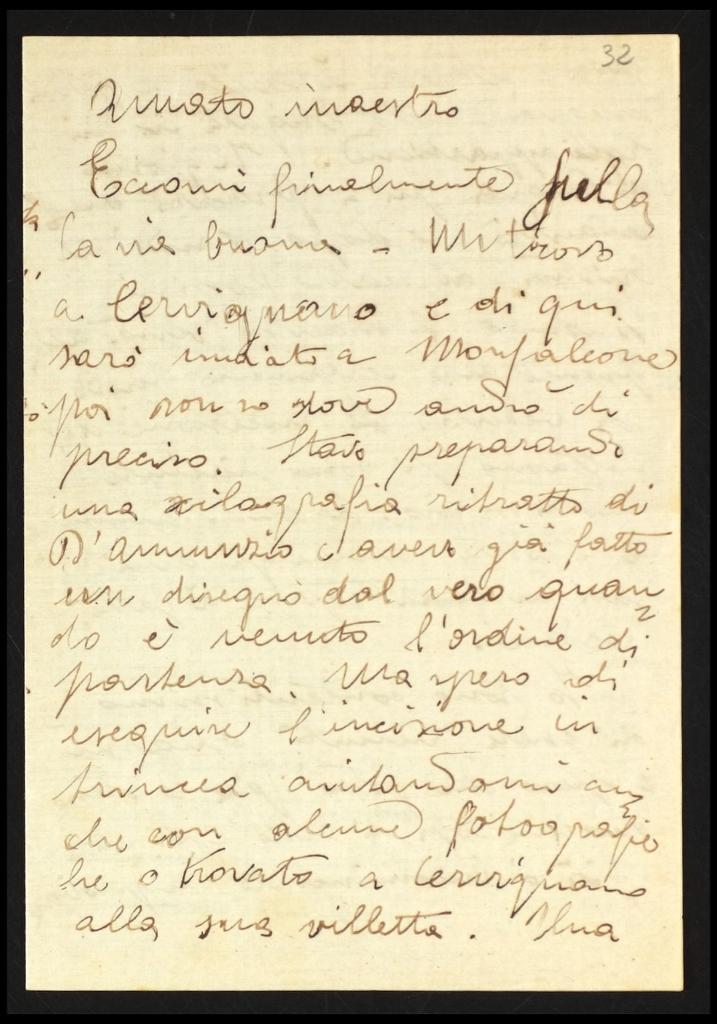 32
Amato maestro
Eccomi finalmente sulla
la via buona - Mi trovo
a Cervignano e di qui
sarò inviato a Monfalcone
poi non so dove andrò di
preciso. Stavo preparando
una xilografia ritratto di
D'annunzio e avevo già fatto
un disegno dal vero quan
do è venuto l'ordine di
partenza. Ma spero di
eseguire l'incisione in
trincea aiutandomi an
che con alcune fotografie
he o trovato a Cervignano
alla sua villetta. Una